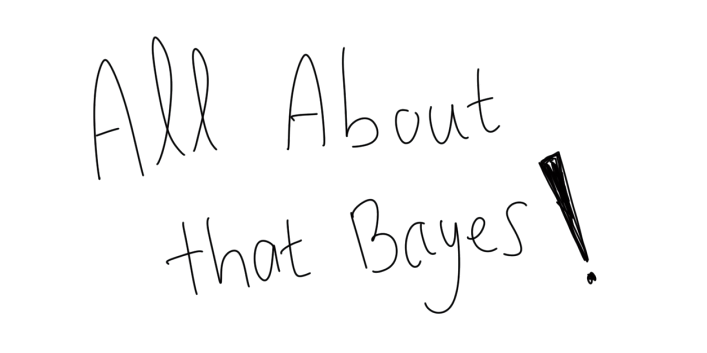 All About
that Bayes!